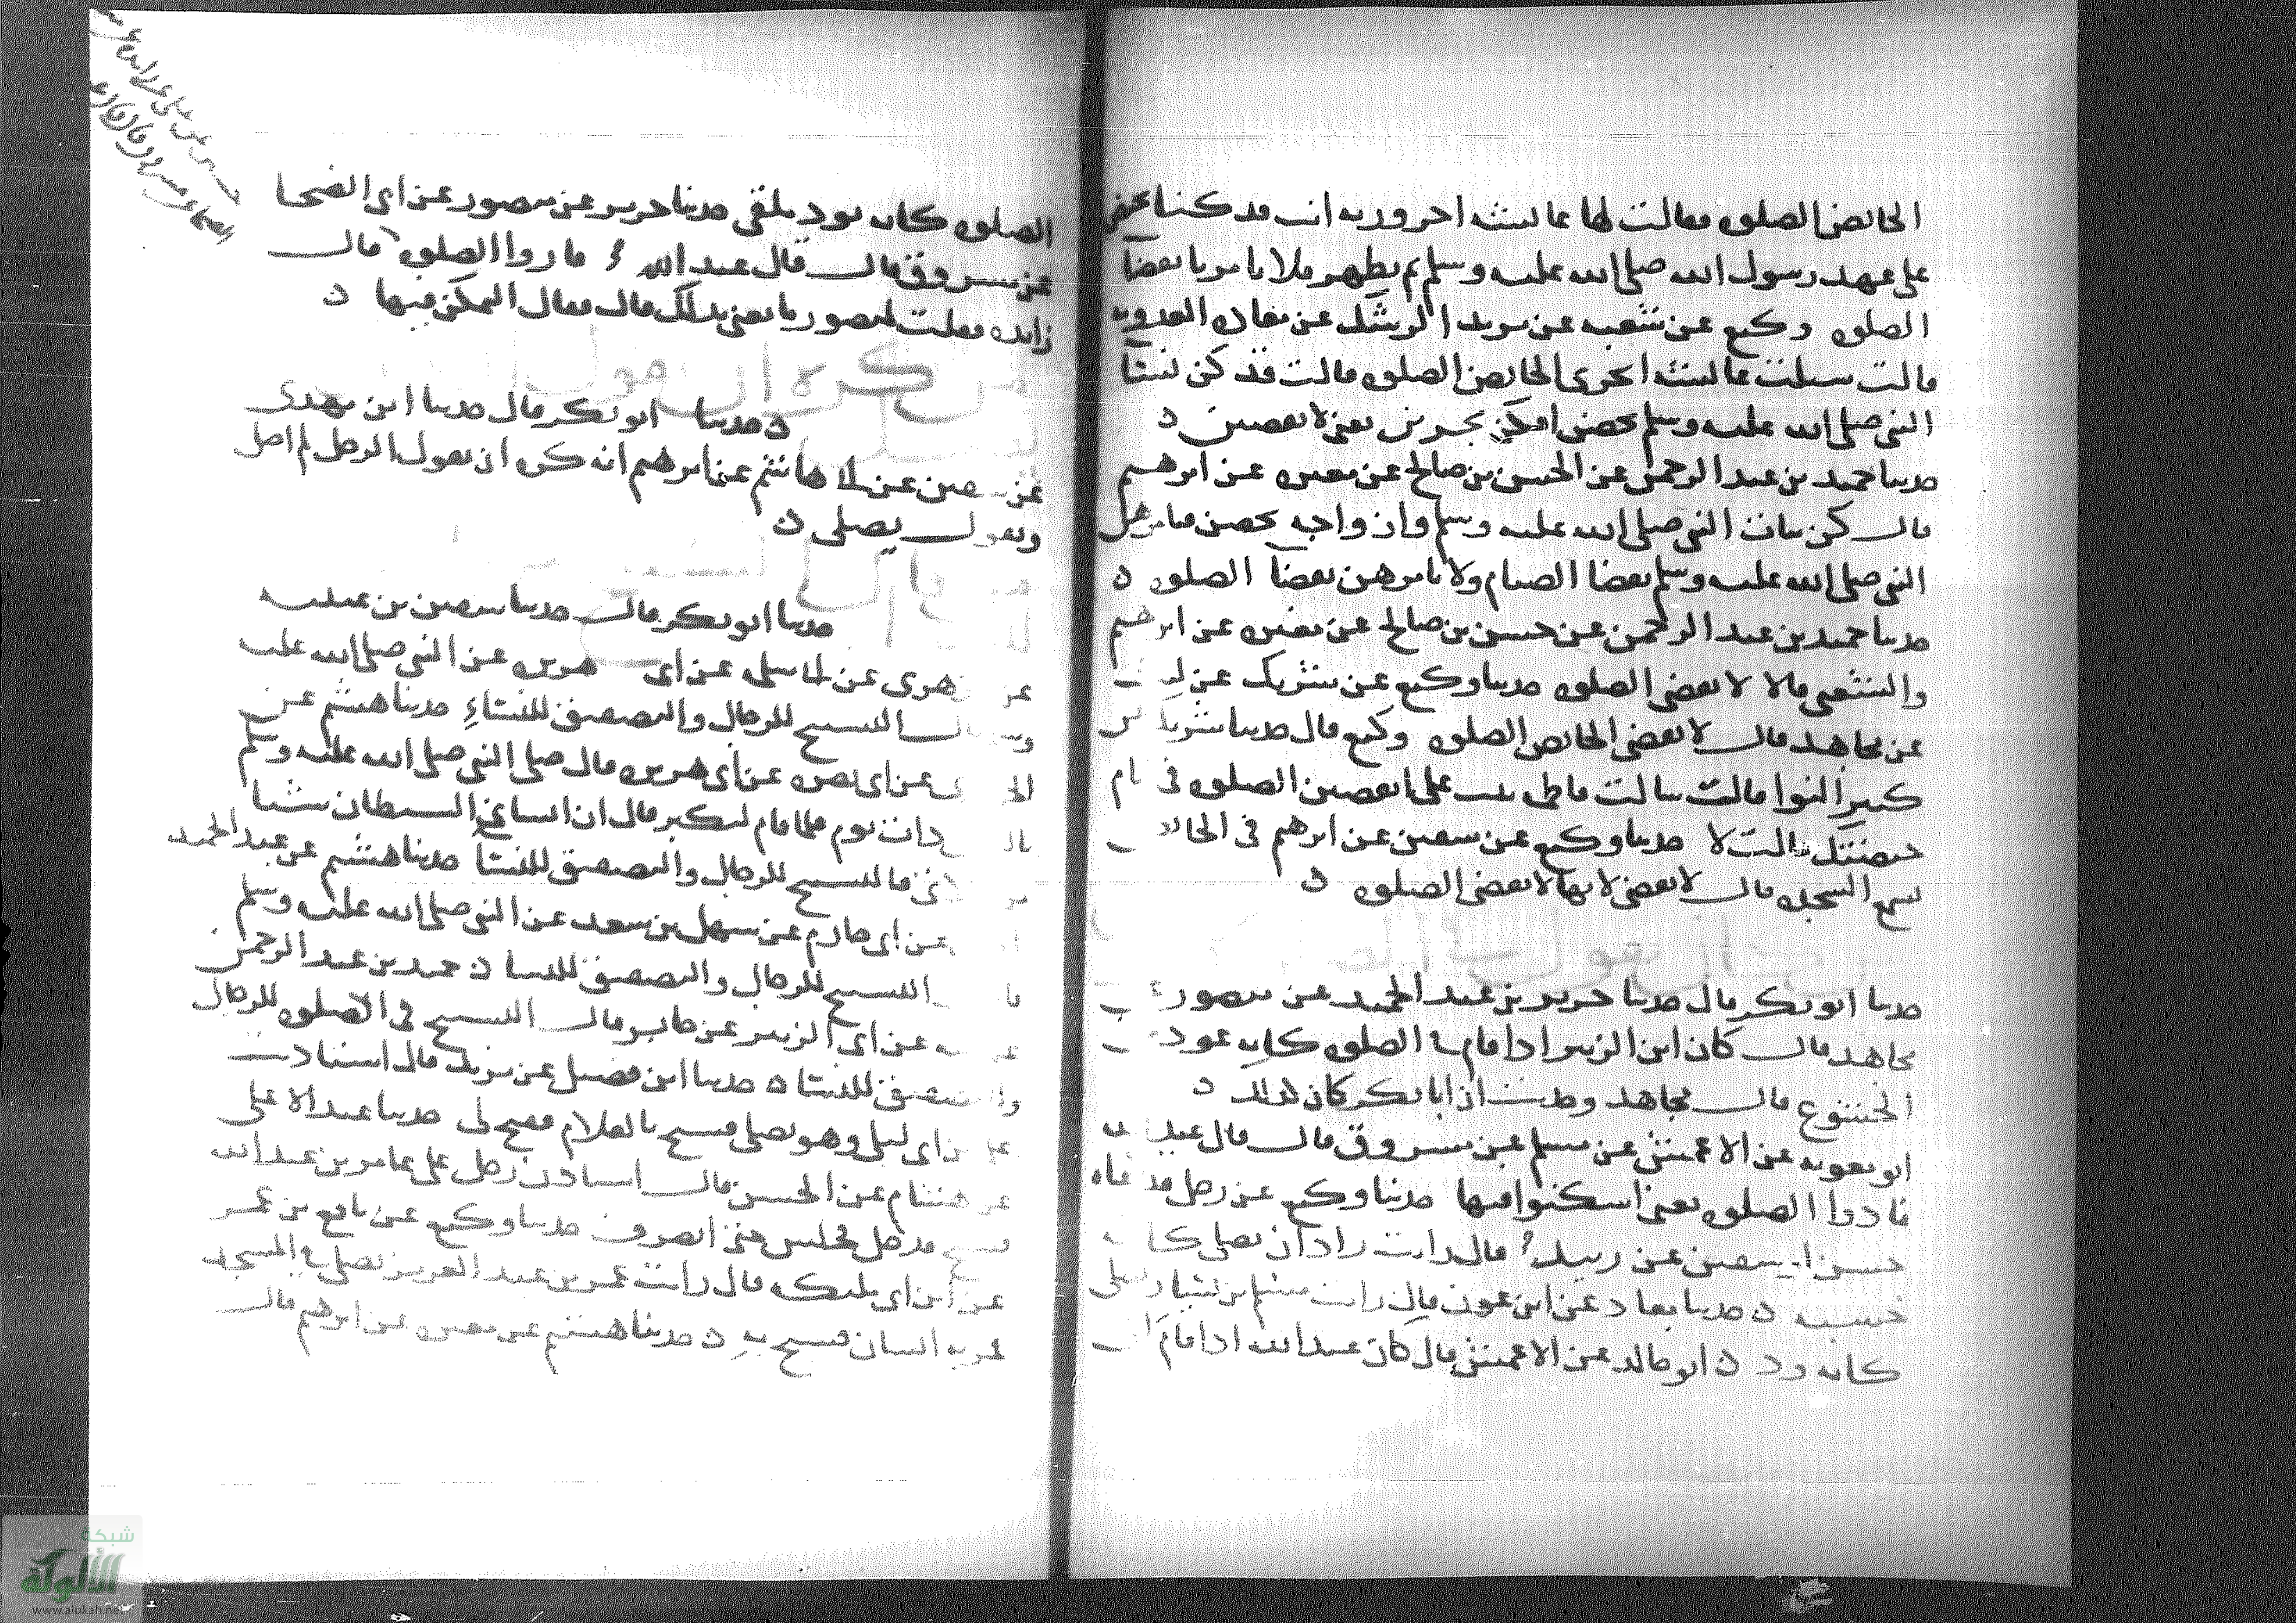 الحائض الصلوه فقالت لها عائشه احروريه انت قد كنا نحيض
على عهد رسول الله صلى الله عليه وسلم ثم نطهر فلا يامرنا بقضا
الصلوه وكيع عن شعبه عن يزيد الرشك عن معاذه العدويه
قالت سيلت عائشه اتجزى الحائض الصلوه قالت قد كن نسا
النبي صلى الله عليه وسلم يحضن افكن يجزين يعني لا يقضين ه
حدثنا حميد بن عبد الرحمن عن الحسن بن صالح عن مغيره عن ابرهيم
قال كن بنات النبي صلى الله عليه وسلم وازواجه يحضن فيامرهن
النبي صلى الله عليه وسلم بقضا الصيام ولا يامرهن بقضا الصلوه ه
حدثنا حميد بن عبد الرحمن عن حسن بن صالح عن مغيره عن ابرهيم
والشعبي قالا لا تقضي الصلوه حدثنا وكيع عن شريك عن ليث
عن مجاهد قال لا تقضي الحائض الصلوه وكيع قال حدثنا شريك عن
كثير النوا قالت سالت فاطمه بنت علي اتقضين الصلوه في ايام
حيضتك قالت لا حدثنا وكيع عن سفين عن ابرهيم في الحائض
تسمع السجده قال لا تقضي لانها لا تقضي الصلوه ه
حدثنا ابو بكر قال حدثنا جرير بن عبد الحميد عن منصور عن
مجاهد قال كان ابن الزبير اذا قام في الصلوه كانه عود من
الخشوع قال مجاهد وحدثت ان ابا بكر كان كذلك ه
ابو معويه عن الاعمش عن مسلم عن مسروق قال قال عبد الله
قاروا الصلوه يعني اسكنوا فيها حدثنا وكيع عن رجل قد سماه
سفين عن زبيد قال رايت زاذان يصلي كانه
خشبه ه حدثنا معاذ عن ابن عون قال رايت مسلم بن يسار يصلي
كانه ود ه ابو خالد عن الاعمش قال كان عبد الله اذا قام الى
الصلوه كانه ثوب ملقى حدثنا جرير عن منصور عن ابي الضحا
عن مسروق قال قال عبد الله قاروا الصلوه قال
زايده فقلت لمنصور ما يعني بذلك قال فقال التمكن فيها ه
ه حدثنا ابو بكر قال حدثنا ابن مهدي
عن سفين عن ابي هاشم عن ابرهيم انه كره ان يقول الرجل لم اصل
ويقول يصلي ه
حدثنا ابو بكر قال حدثنا سفين بن عيينه
عن الزهري عن ابي سلمه عن ابي هريره عن النبي صلى الله عليه
وسلم قال التسبيح للرجال والتصفيق للنساء حدثنا هشيم عن
الجريري عن ابي نضره عن ابي هريره قال صلى النبي صلى الله عليه وسلم
بالناس ذات يوم فلما قام ليكبر قال ان انساني الشيطان شيا
من صلاتي فالتسبيح للرجال والتصفيق للنسا حدثنا هشيم عن عبد الحميد
عن ابي حازم عن سهل بن سعد عن النبي صلى الله عليه وسلم
قال التسبيح للرجال والتصفيق للنسا ه حميد بن عبد الرحمن
عن ابيه عن ابي الزبير عن جابر قال التسبيح في الصلوه للرجال
والتصفيق للنسا ه حدثنا ابن فضيل عن يزيد قال استاذنت
على ابن ابي ليلى وهو يصلي فسبح بالغلام ففتح لي حدثنا عبد الاعلى
عن هشام عن الحسن قال استاذن رجل على عامر بن عبد الله
فسبح فدخل فجلس حتى انصرف حدثنا وكيع عن نافع بن عمر
عن ابن ابي مليكه قال رايت عمر بن عبد العزيز يصلي في المسجد
فمر به انسان فسبح به ه حدثنا هشيم عن مغيره عن ابرهيم قال
شبكة
الألوكة
www.alukah.net